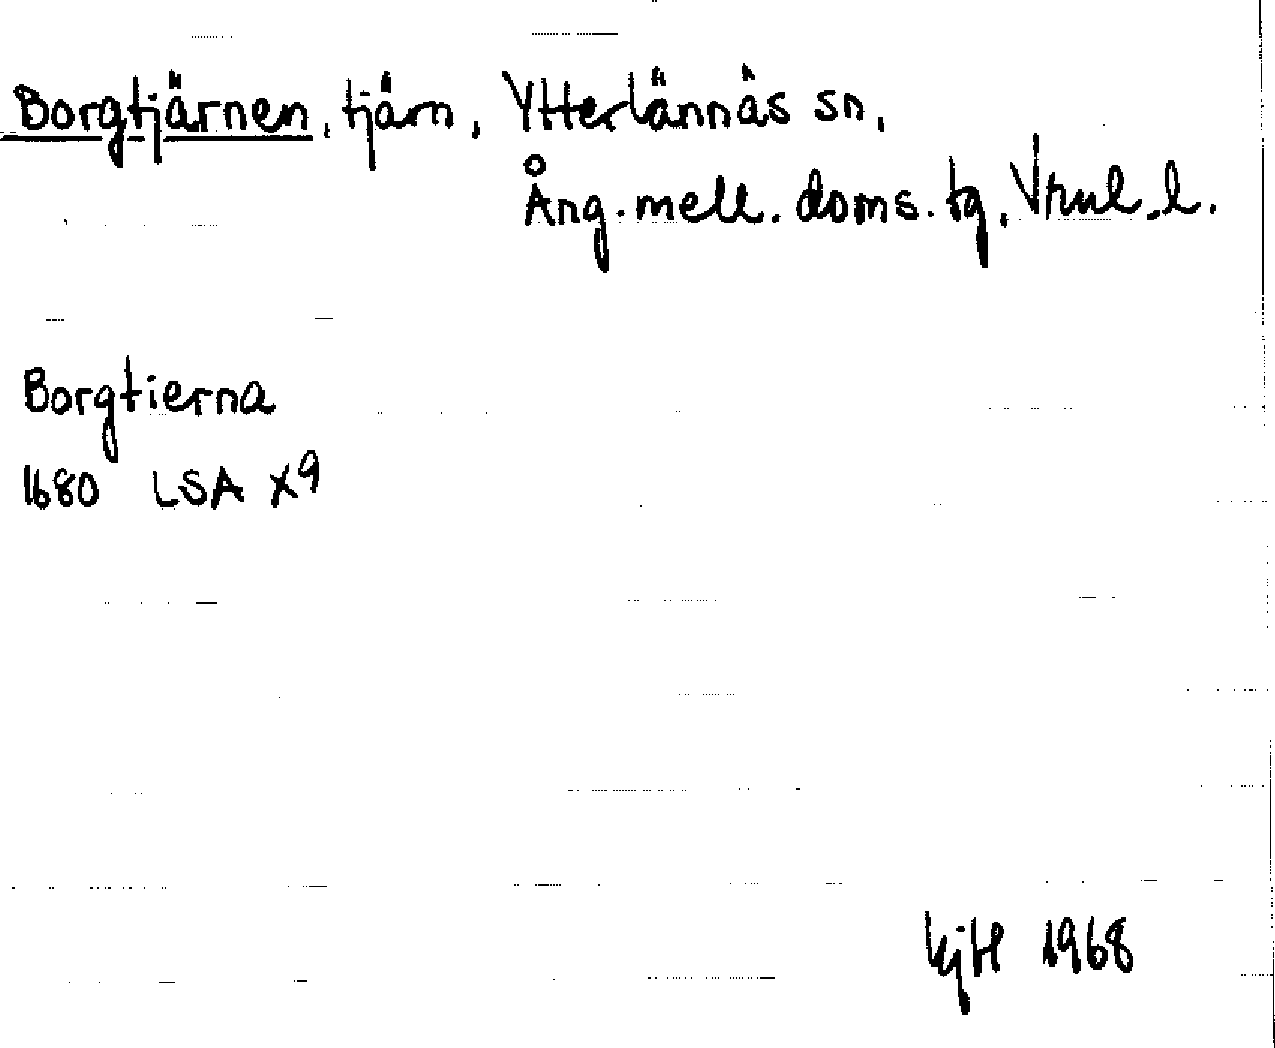 Borgtjärnen, tjärn, Ytterlännäs sn,
Ång. mell. doms. tg, Vnrl. l.
Borgtierna
1680 LSA X9
KjH 1968